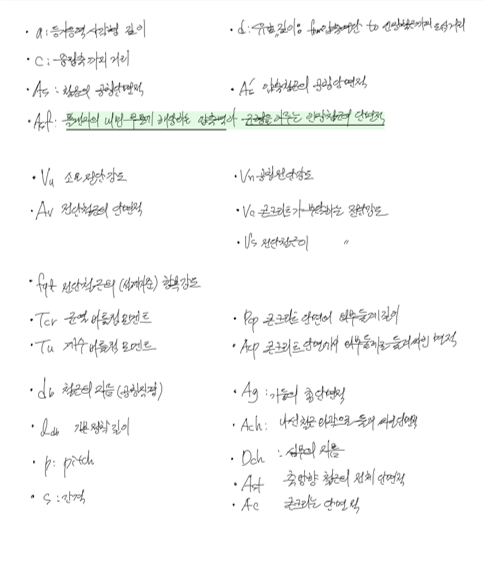 · a: 등가응력 사각형 깊이
· d: 유효깊이
· c: 중립축까지 거리
· As: 철근의 공칭단면적
· As' 압축철근의 공칭단면적
· Asf: 플랜지의 내민 부분 압축력과 균형을 이루는 인장철근의 단면적
· Vu 소요 전단강도
· Vn 공칭전단강도
· Av 전단철근의 단면적
· Vc 콘크리트가 부담하는 전단강도
· Vs 전단철근이 〃
· fyt 전단철근의 (설계기준) 항복강도
· Tcr 균열 비틀림모멘트
· Pcp 콘크리트 단면의 외부둘레길이
· Tu 계수 비틀림모멘트
· Acp 콘크리트 단면에서 외부둘레로 둘러싸인 면적
· db 철근의 지름 (공칭직경)
· Ag: 기둥의 총단면적
· ldb 기본정착길이
· Ach: 나선철근 바깥으로 둘러싸인 단면적
· p: pitch
· Dch : 심부의 지름
· Ast 축방향 철근의 전체 단면적
· s: 간격
· Ac 콘크리트 단면적